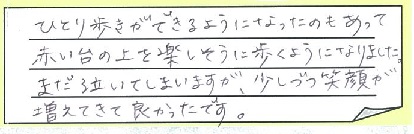 ひとり歩きができるようになったのもあって
赤い台の上を楽しそうに歩くようになりました。
まだ泣いてしまいますが、少しづつ笑顔が
増えてきて良かったです。